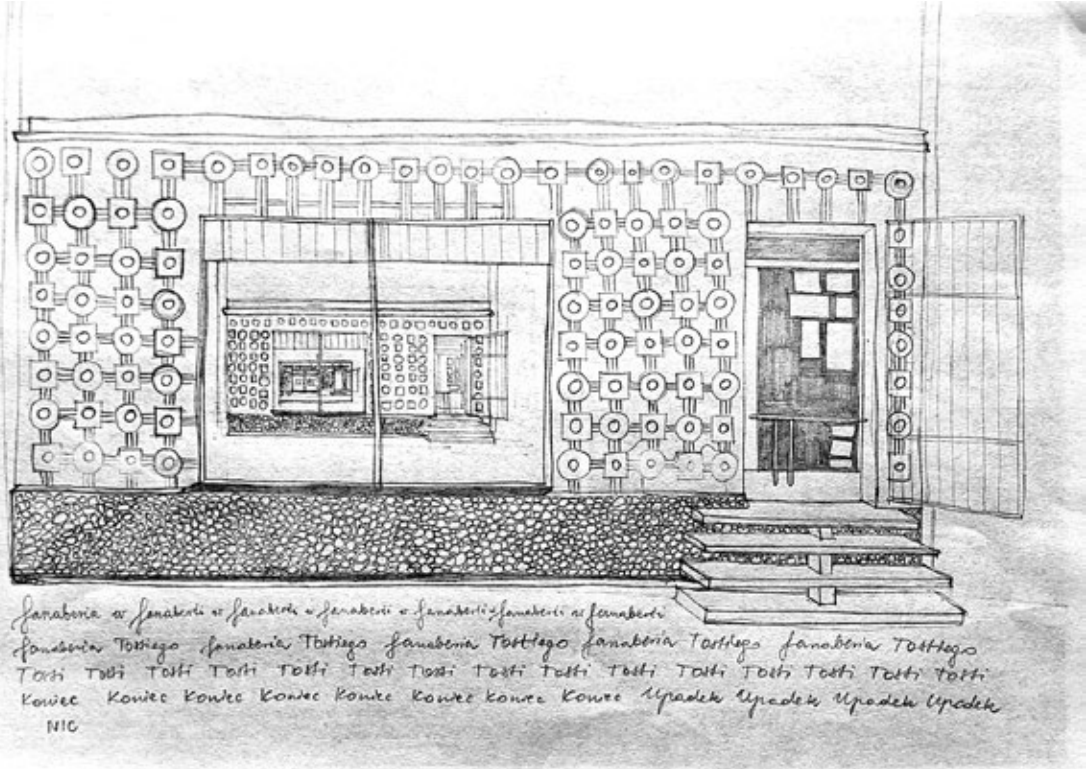 fanaberia w fanaberii w fanaberii w fanaberii w fanaberii w fanaberii w fanaberii
fanaberia Tostiego fanaberia Tostiego fanaberia Tosttego fanaberia Tosttego fanaberia Tosttego
Tosti Tosti Tosti Tosti Tosti Tosti Tosti Tosti Tosti Tosti Tosti Tosti Tosti Tosti Tosti
Koniec Koniec Koniec Koniec Koniec Koniec Koniec Koniec Upadek Upadek Upadek Upadek
NIC